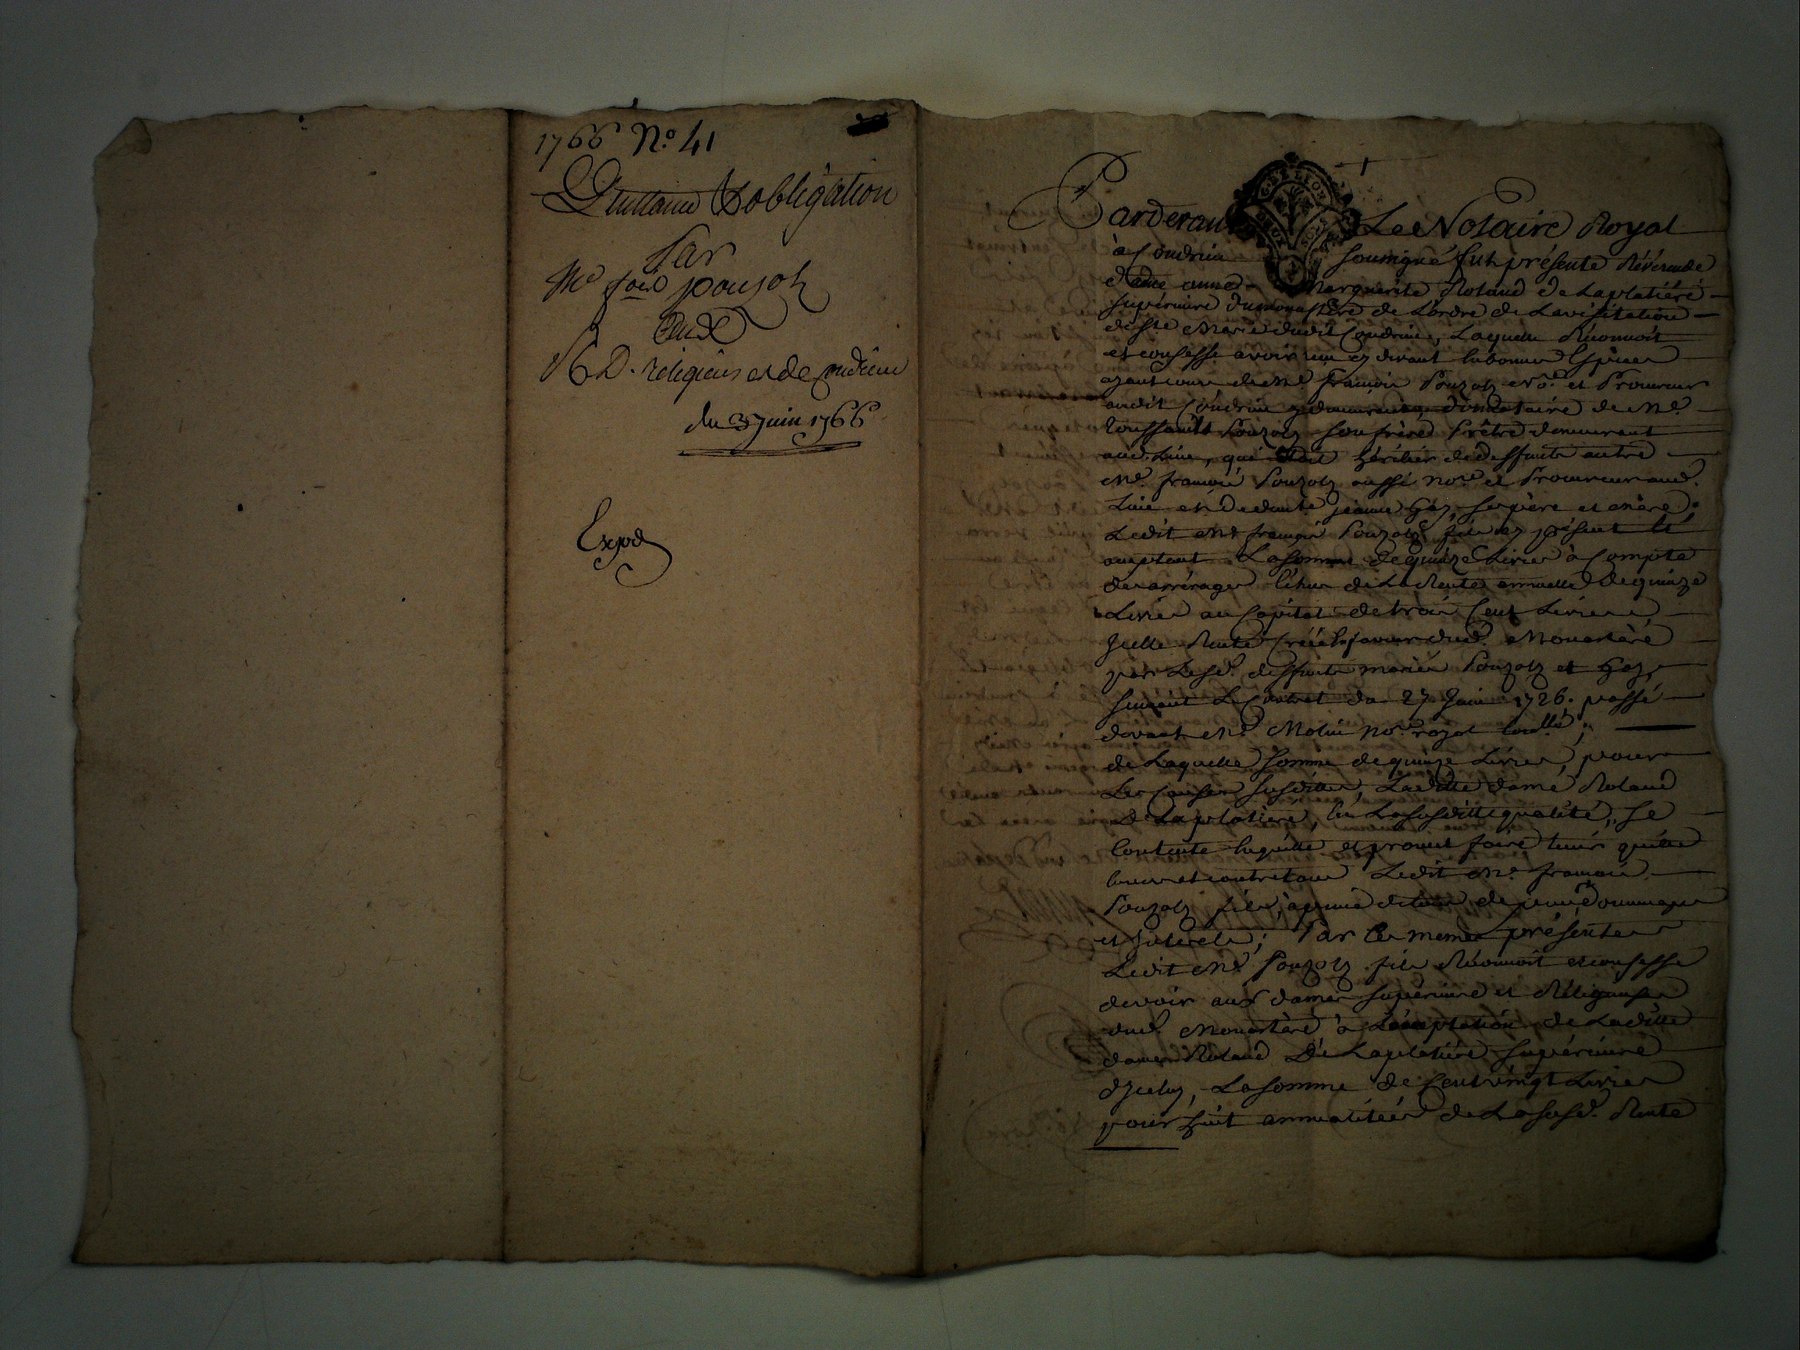 1766 N.o 41
Quittance & obligation
Par
Me fois pouzols
aux
R D. religieuses de Condrieu
du 3 juin 1766
Exped
Pardevant Le Notaire Royal
à Condrieu soussigné fut présente Révérende
dame anne Marguerite Roland de Laplatière
supérieure du monastère de L'ordre de La visitation
de Ste Marie dudit Condrieu, Laquelle Réconnoit
et confesse avoir reçu cy devant en bonnes Espèces
ayant cours de Me. françois Pouzols No.re et Procureur
audit Condrieu y demeurant, donnataire de Me.
Pouzols son frère Prêtre demeurant
aud. Lieu, qui étoit héritier de deffunts autre
Me. françois Pouzols aussi no.re et Procureur aud.
Lieu et de demlle jeanne Gay, ses père et mère.
Ledit Me françois Pouzols fils cy présent et
acceptant La somme de quinze Livres à Compte
des arrérages échus de La Rente annuelle de quinze
Livres au Capital de trois Cent Livres
Icelle Rente Créée en faveur dud. Monastère
par Lesd. deffunts mariés Pouzols et Gay,
suivant Le Contrat du 27 Juin 1726. passé
devant Me. Molin no.re royal ;
de Laquelle somme de quinze Livres, pour
Les Causes susdittes, Laditte dame Roland
De Laplatière, en La susditte qualité, se
Contente en quitte et promet faire tenir quitte
envers et contre tous Ledit Me. françois
Pouzols fils, à peine de tous dépens, dommages
et Interets; Par Ces mêmes présentes
Ledit Me. Pouzols fils Réconnoit et confesse
devoir aux dames supérieure et Réligieuses
dud. Monastère à L'acceptation de Laditte
dame Roland De Laplatière supérieure
d'Iceluy, La somme de Cent vingt Livres
pour huit annualitées de La susd. Rente